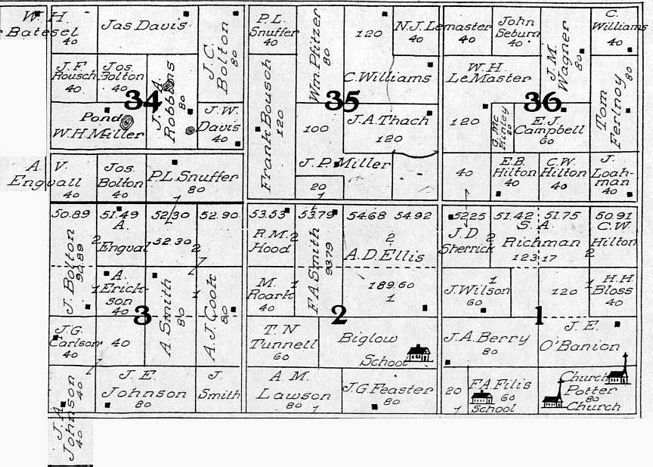 W. H. Batesel 40
Jas Davis
J. C. Bolton 80
P. L. Snuffer 40
Wm. Pfitzer 80
120
N. J. Lemaster 40
John Seburn 40
J. M. Wagner 80
C. Williams 40
J. F. Rousch 40
Jos Bolton 40
J. A. Robbins 80
34
C. Williams
35
W. H. LeMaster
36
Tom Fernoy 80
Pond
W. H. Miller
J. W. Davis 40
Frank Bousch 120
100
J. A. Thach 120
120
E. J. Campbell 60
A. V. Engvall 40
Jos. Bolton 40
P. L. Snuffer 80
J. P. Miller
20
1
40
E. B. Hilton 40
C. W. Hilton 40
J. Loahman 40
50.89 51.49 52.30 52.90 53.53 53.79 54.68 54.92 52.25 51.42 51.75 50.91
J. Bolton 92.89
2
A. Engval
52.30
2
R. M. Hood
2
F. A. Smith 93.79
A. D. Ellis
189.60
1
J. D. Sherrick
2
S. A. Richman 123.17
C. W. Hilton
2
1
A. Erickson 40
A. Smith 80
A. J. Cook 80
M. Roark 40
1
J. Wilson 60
1
120
1
H. H. Bloss 40
J. G. Carlson 40
40
3
T. N. Tunnell 60
2
Biglow School
J. A. Berry 80
1
J. E. O'Banion
J. E. Johnson 80
J. Smith
A. M. Lawson 80
1
J. G. Feaster 80
20
1
F. A. Ellis 60
School
Church
Potter 80
Church
J. A. Johnson 40